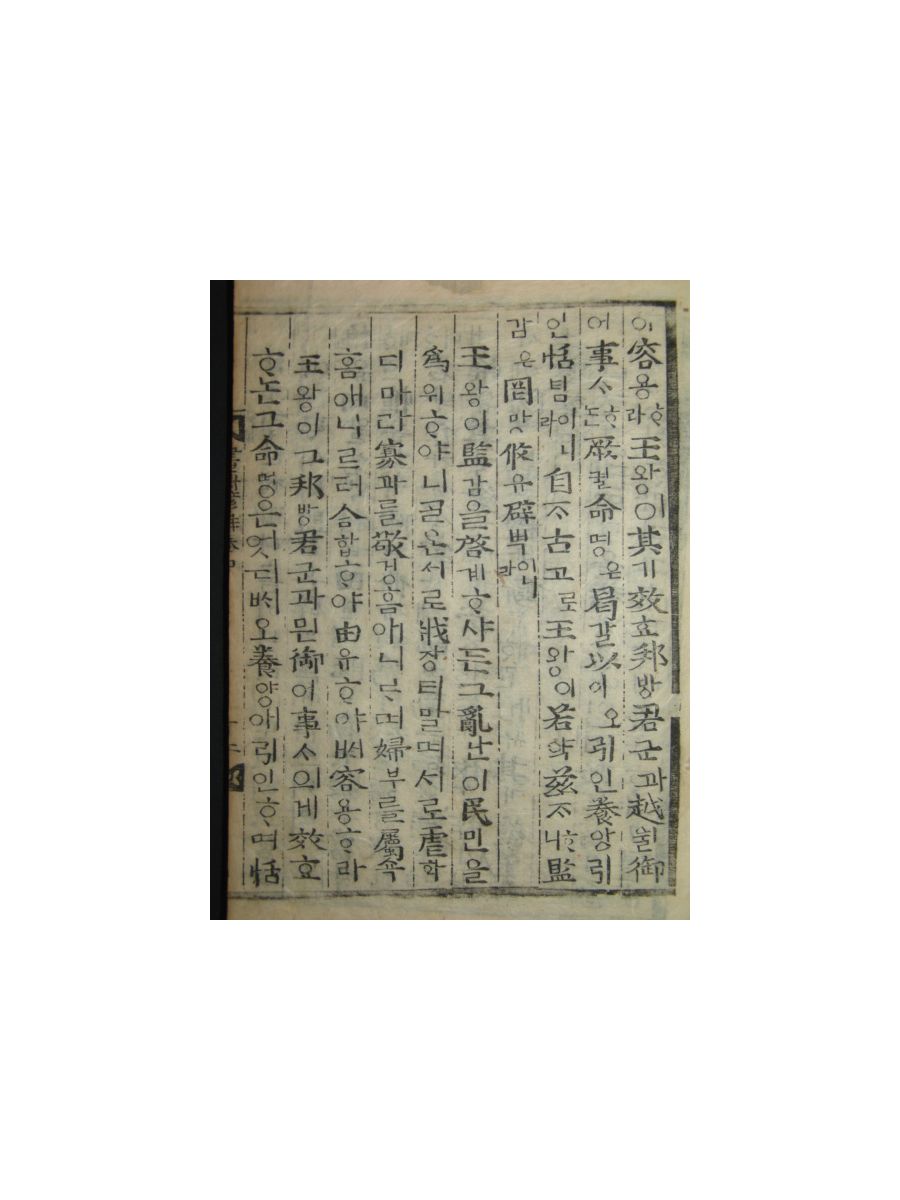 以이容용ᄒᆞ라王왕이其기效효邦방君군과越월御
어事ᄉᆞᄒᆞ논厥궐命명은曷갈以이오引인養양引
인恬념이니라自ᄌᆞ古고로王왕이若약玆ᄌᆞᄒᆞ니監
감은罔망攸유辟벽이니라
王왕이監감을啓계ᄒᆞ샤ᄃᆞᆫ그亂난이民민을
爲위ᄒᆞ야니ᄀᆞᆯ온서로戕장티말며서로虐학
디마라寡과를敬경홈애니르며婦부를屬쇽
홈애니르러合합ᄒᆞ야由유ᄒᆞ야ᄡᅥ容용ᄒᆞ라
王왕이그邦방君군과믿御어事ᄉᆞ의게效효
ᄒᆞ논그命명은엇디ᄡᅥ오養양애引인ᄒᆞ며恬